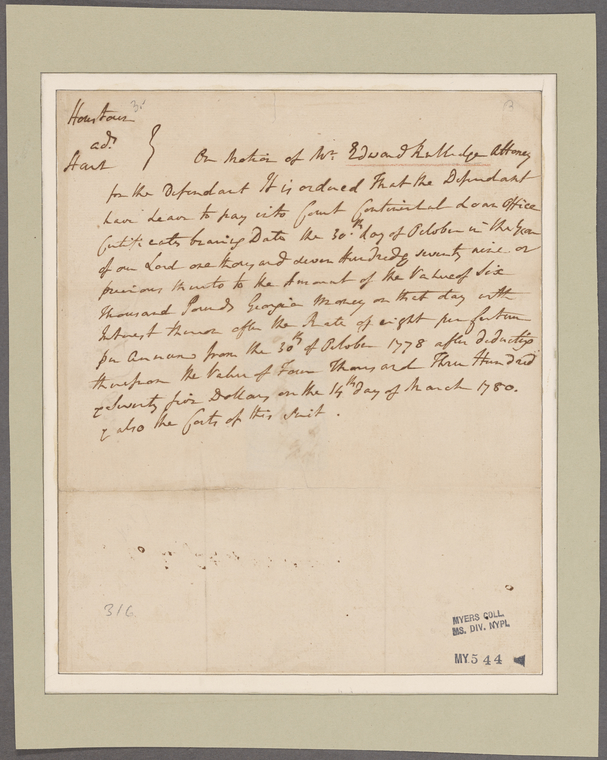 Houstoun
ads
Hart
On Motion of Mr. Edward Rutledge Attorney
for the Defendant It is ordered That the Defendant
have Leave to pay into Court Continental Loan Office
Certificates bearing Date the 30th day of October in the Year
of our Lord one thousand seven Hundred & seventy nine or
previous thereto to the Amount of the Value of Six
Thousand Pounds Georgia Money on that day with
Interest thereon after the Rate of eight per Centum
per Annum from the 30th of October 1778 after deducting
therefrom the Value of Four Thousand Three Hundred
& Seventy five Dollars on the 14th day of March 1780.
& also the Costs of this Suit.
316
MYERS COLL.
MS. DIV. NYPL
MY 544